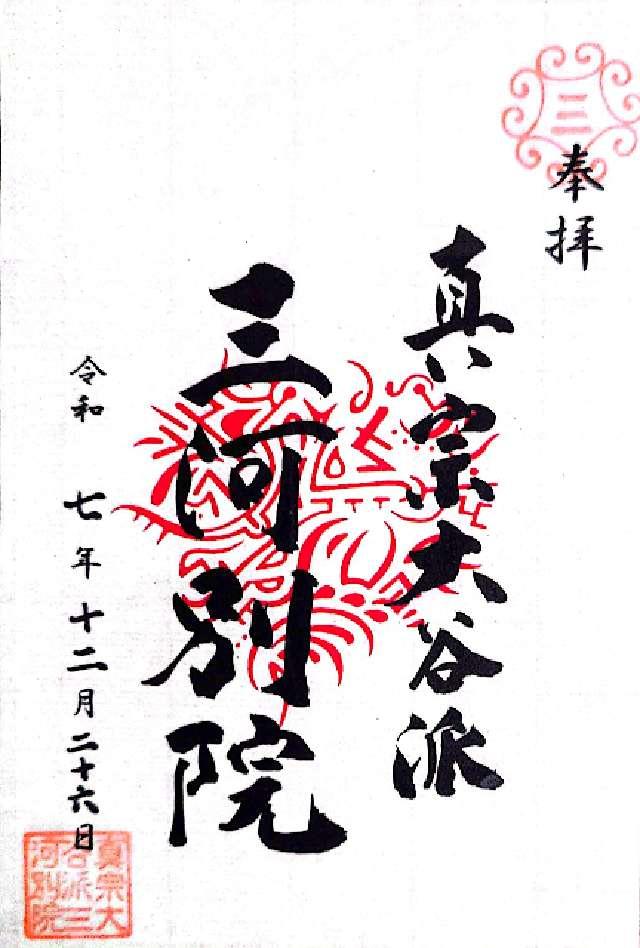 三
奉拝
真宗大谷派
三河別院
令和 七年十二月二十六日
真宗大
谷派三
河別院